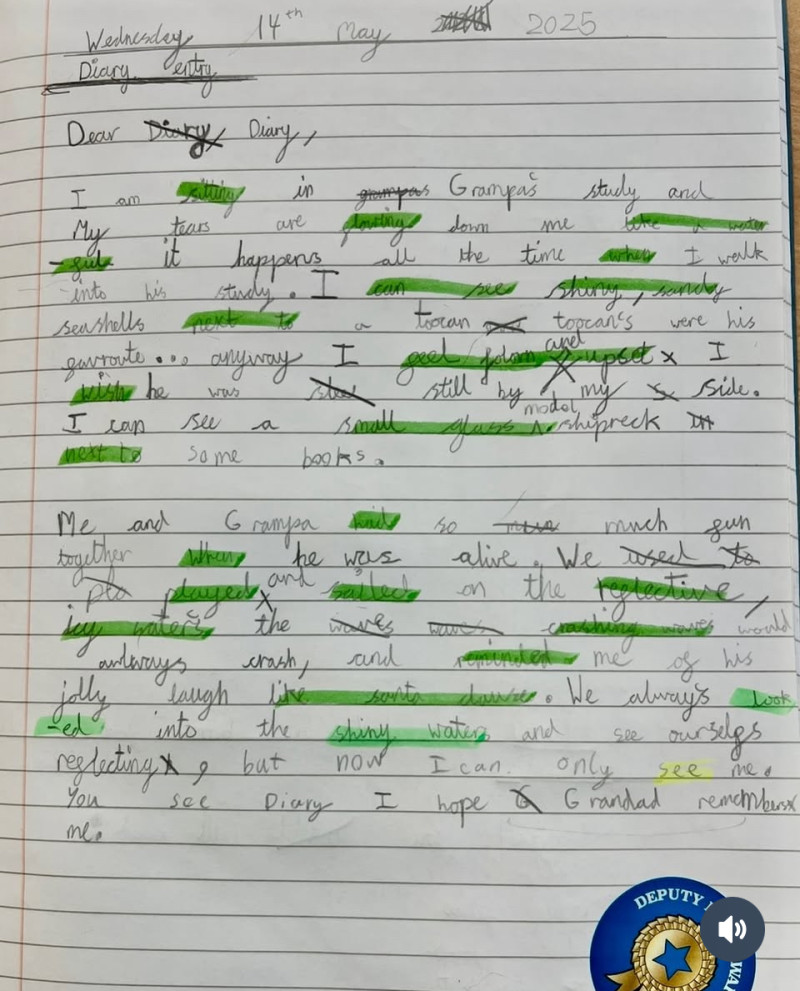 Wednesday 14th May 2025
Diary entry
Dear Diary Diary,
I am sitting in grampas Grampa's study and
My tears are flowing down me like a water
-ful it happens all the time when I walk
into his study. I can see shiny, sandy
seashells next to a toocan toocan's were his
favroute... anyway I feel down and upset I
wish he was still by my side.
I can see a small glass model shipreck
next to some books.
Me and Grampa had so much fun
together when he was alive. We used to
pla played and sailed on the reflective,
icy waters the waves waves crashing waves would
always crash, and reminded me of his
jolly laugh like santa clause. We always look
-ed into the shiny waters and see ourselfs
reflecting, but now I can only see me.
You see Diary I hope Grandad remembers
me.
DEPUTY